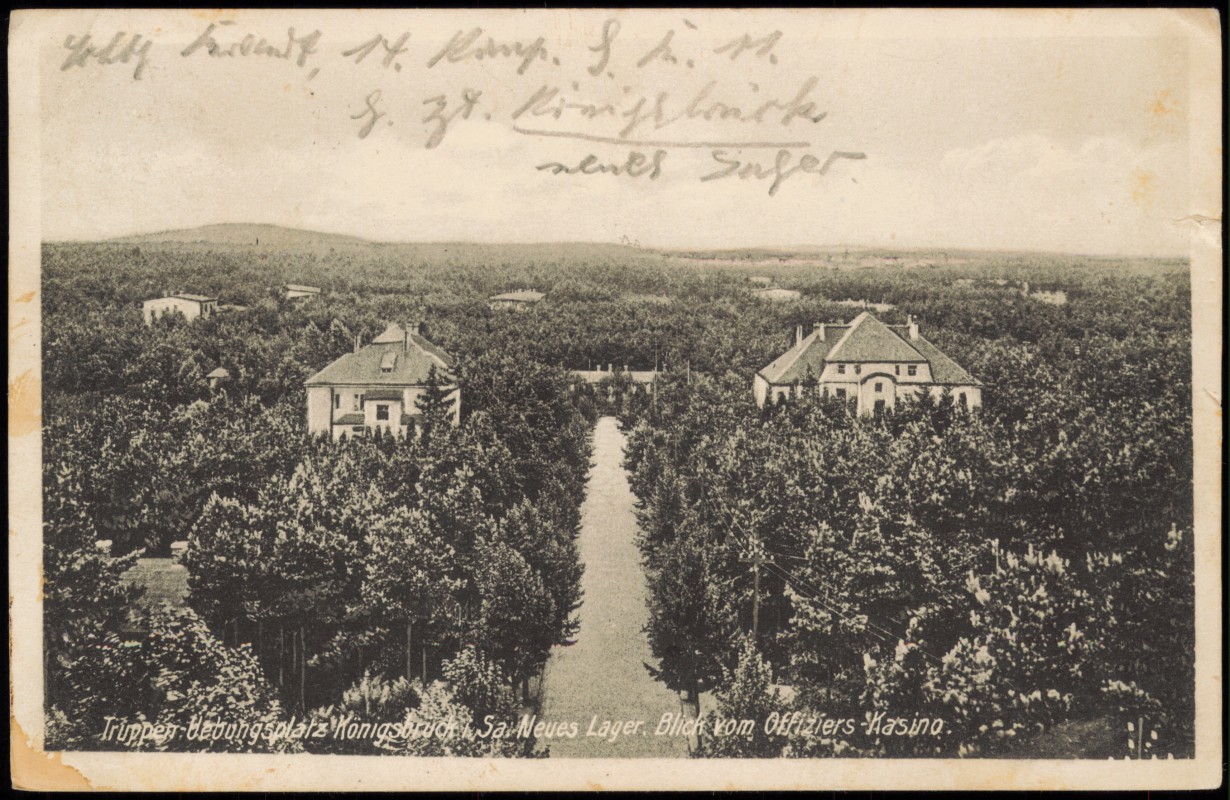 14. Komp. J. R. 11.
z. Zt. Königsbrück
neues Lager.
Truppen-Uebungsplatz Königsbrück i. Sa. Neues Lager. Blick vom Offiziers-Kasino.